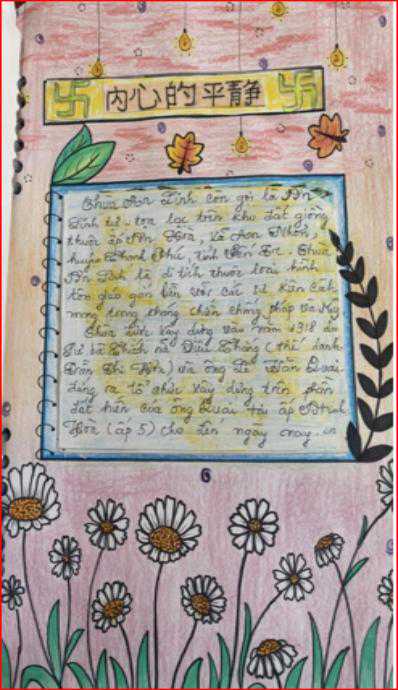 内心的平静
Chùa An Tịnh còn gọi là An
Tịnh tự tọa lạc trên khu đất giồng
thuộc ấp An Hòa, xã An Nhơn,
huyện Thạnh Phú, tỉnh Bến Tre. Chùa
An Tịnh là di tích thuộc loại hình
tôn giáo gắn liền với các sự kiện Cách
mạng trong kháng chiến chống Pháp và Mỹ
Chùa được xây dựng vào năm 1918 do
Sư bà Thích nữ Diệu Thắng (thế danh
Trần Thị Hòa) và ông Lê Văn Quai
đứng ra tổ chức xây dựng trên phần
đất hiến của ông Quai tại ấp
Hòa (ấp 5) cho đến ngày nay.